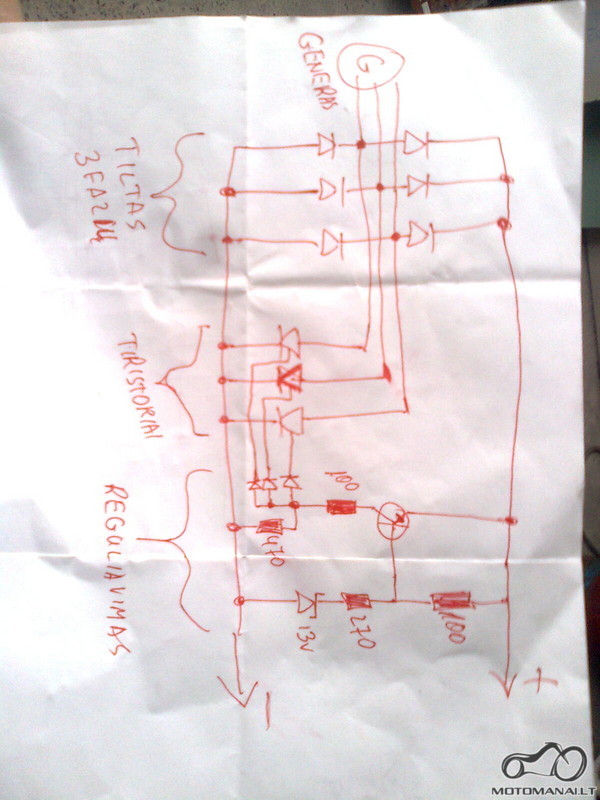 GENERAS
G
TILTAS
3 FAZIŲ
TIRISTORIAI
REGULIAVIMAS
100
470
13V
270
100
+
-
MOTOMANAI.LT